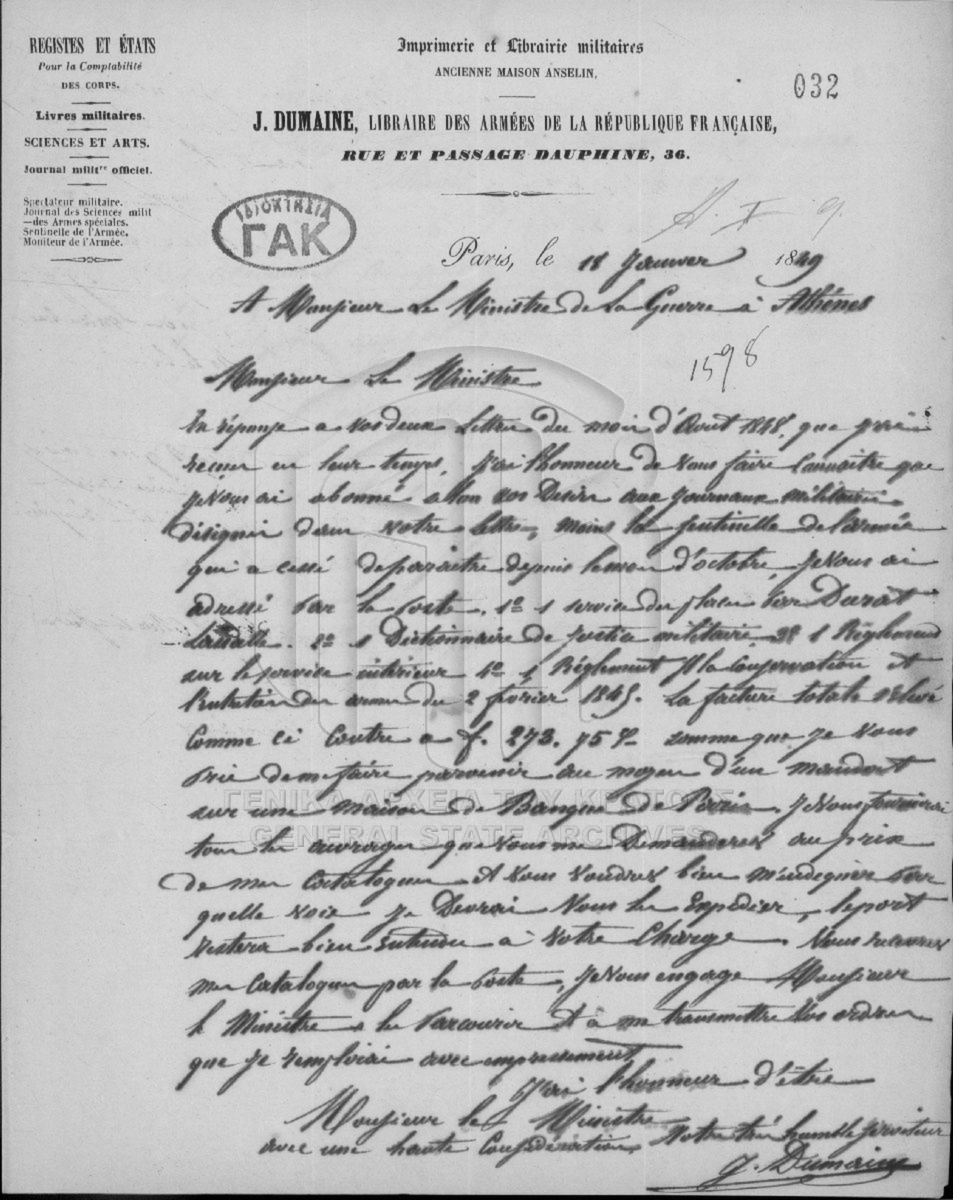 REGISTES ET ÉTATS
Pour la Comptabilité
DES CORPS.
Livres militaires.
SCIENCES ET ARTS.
Journal milit^re officiel.
Spectateur militaire.
Journal des Sciences milit
—des Armes spéciales.
Sentinelle de l'Armée.
Moniteur de l'Armée.
Imprimerie et Librairie militaires
ANCIENNE MAISON ANSELIN.
032
J. DUMAINE, LIBRAIRE DES ARMÉES DE LA RÉPUBLIQUE FRANÇAISE,
RUE ET PASSAGE DAUPHINE, 36.
ΙΔΙΟΚΤΗΣΙΑ
ΓΑΚ
Paris, le 18 Janvier 1849
A Monsieur Le Ministre de La Guerre à Athénes
1598
Monsieur Le Ministre
En réponse a vos deux Lettres du mois d'Août 1848, que j'ai
recues en leur temps, J'ai l'honneur de vous faire Connaitre que
Je Vous ai abonné selon vos Desirs aux Journaux militaires
désignés dans votre Lettre, moins la Sentinelle de l'armée
qui a cessé de paraitre depuis le mois d'octobre, Je Vous ai
adressé par la poste. 1º 1 service des places par Durat
Lasalle. 2º 1 Dictionnaire de Justice militaire 3º 1 Réglement
sur le service intérieur 4º 1 Réglement sr la Conservation et
l'entretien des armes du 2 février 1845. La facture totale s'élève
Comme ci Contre a f. 273. 75 c. somme que je vous
prie de me faire parvenir au moyen d'un mandat
sur une maison de Banque de Paris. Je Vous fournirai
tous les ouvrages que vous me Demanderez au prix
de mes Catalogues et Vous voudrez bien m'indiquer par
quelle voie Je Devrai Vous les Expédier, le port
restera bien entendu à votre Charge. Vous recevrez
mes Catalogues par la poste, Je Vous engage Monsieur
le Ministre a les Parcourir et à me transmettre vos ordres
que Je remplirai avec empressement
J'ai l'honneur d'être
Monsieur le Ministre
avec une haute Considération Votre très humble serviteur
J. Dumaine
ΓΕΝΙΚΑ ΑΡΧΕΙΑ ΤΟΥ ΚΡΑΤΟΥΣ
GENERAL STATE ARCHIVES